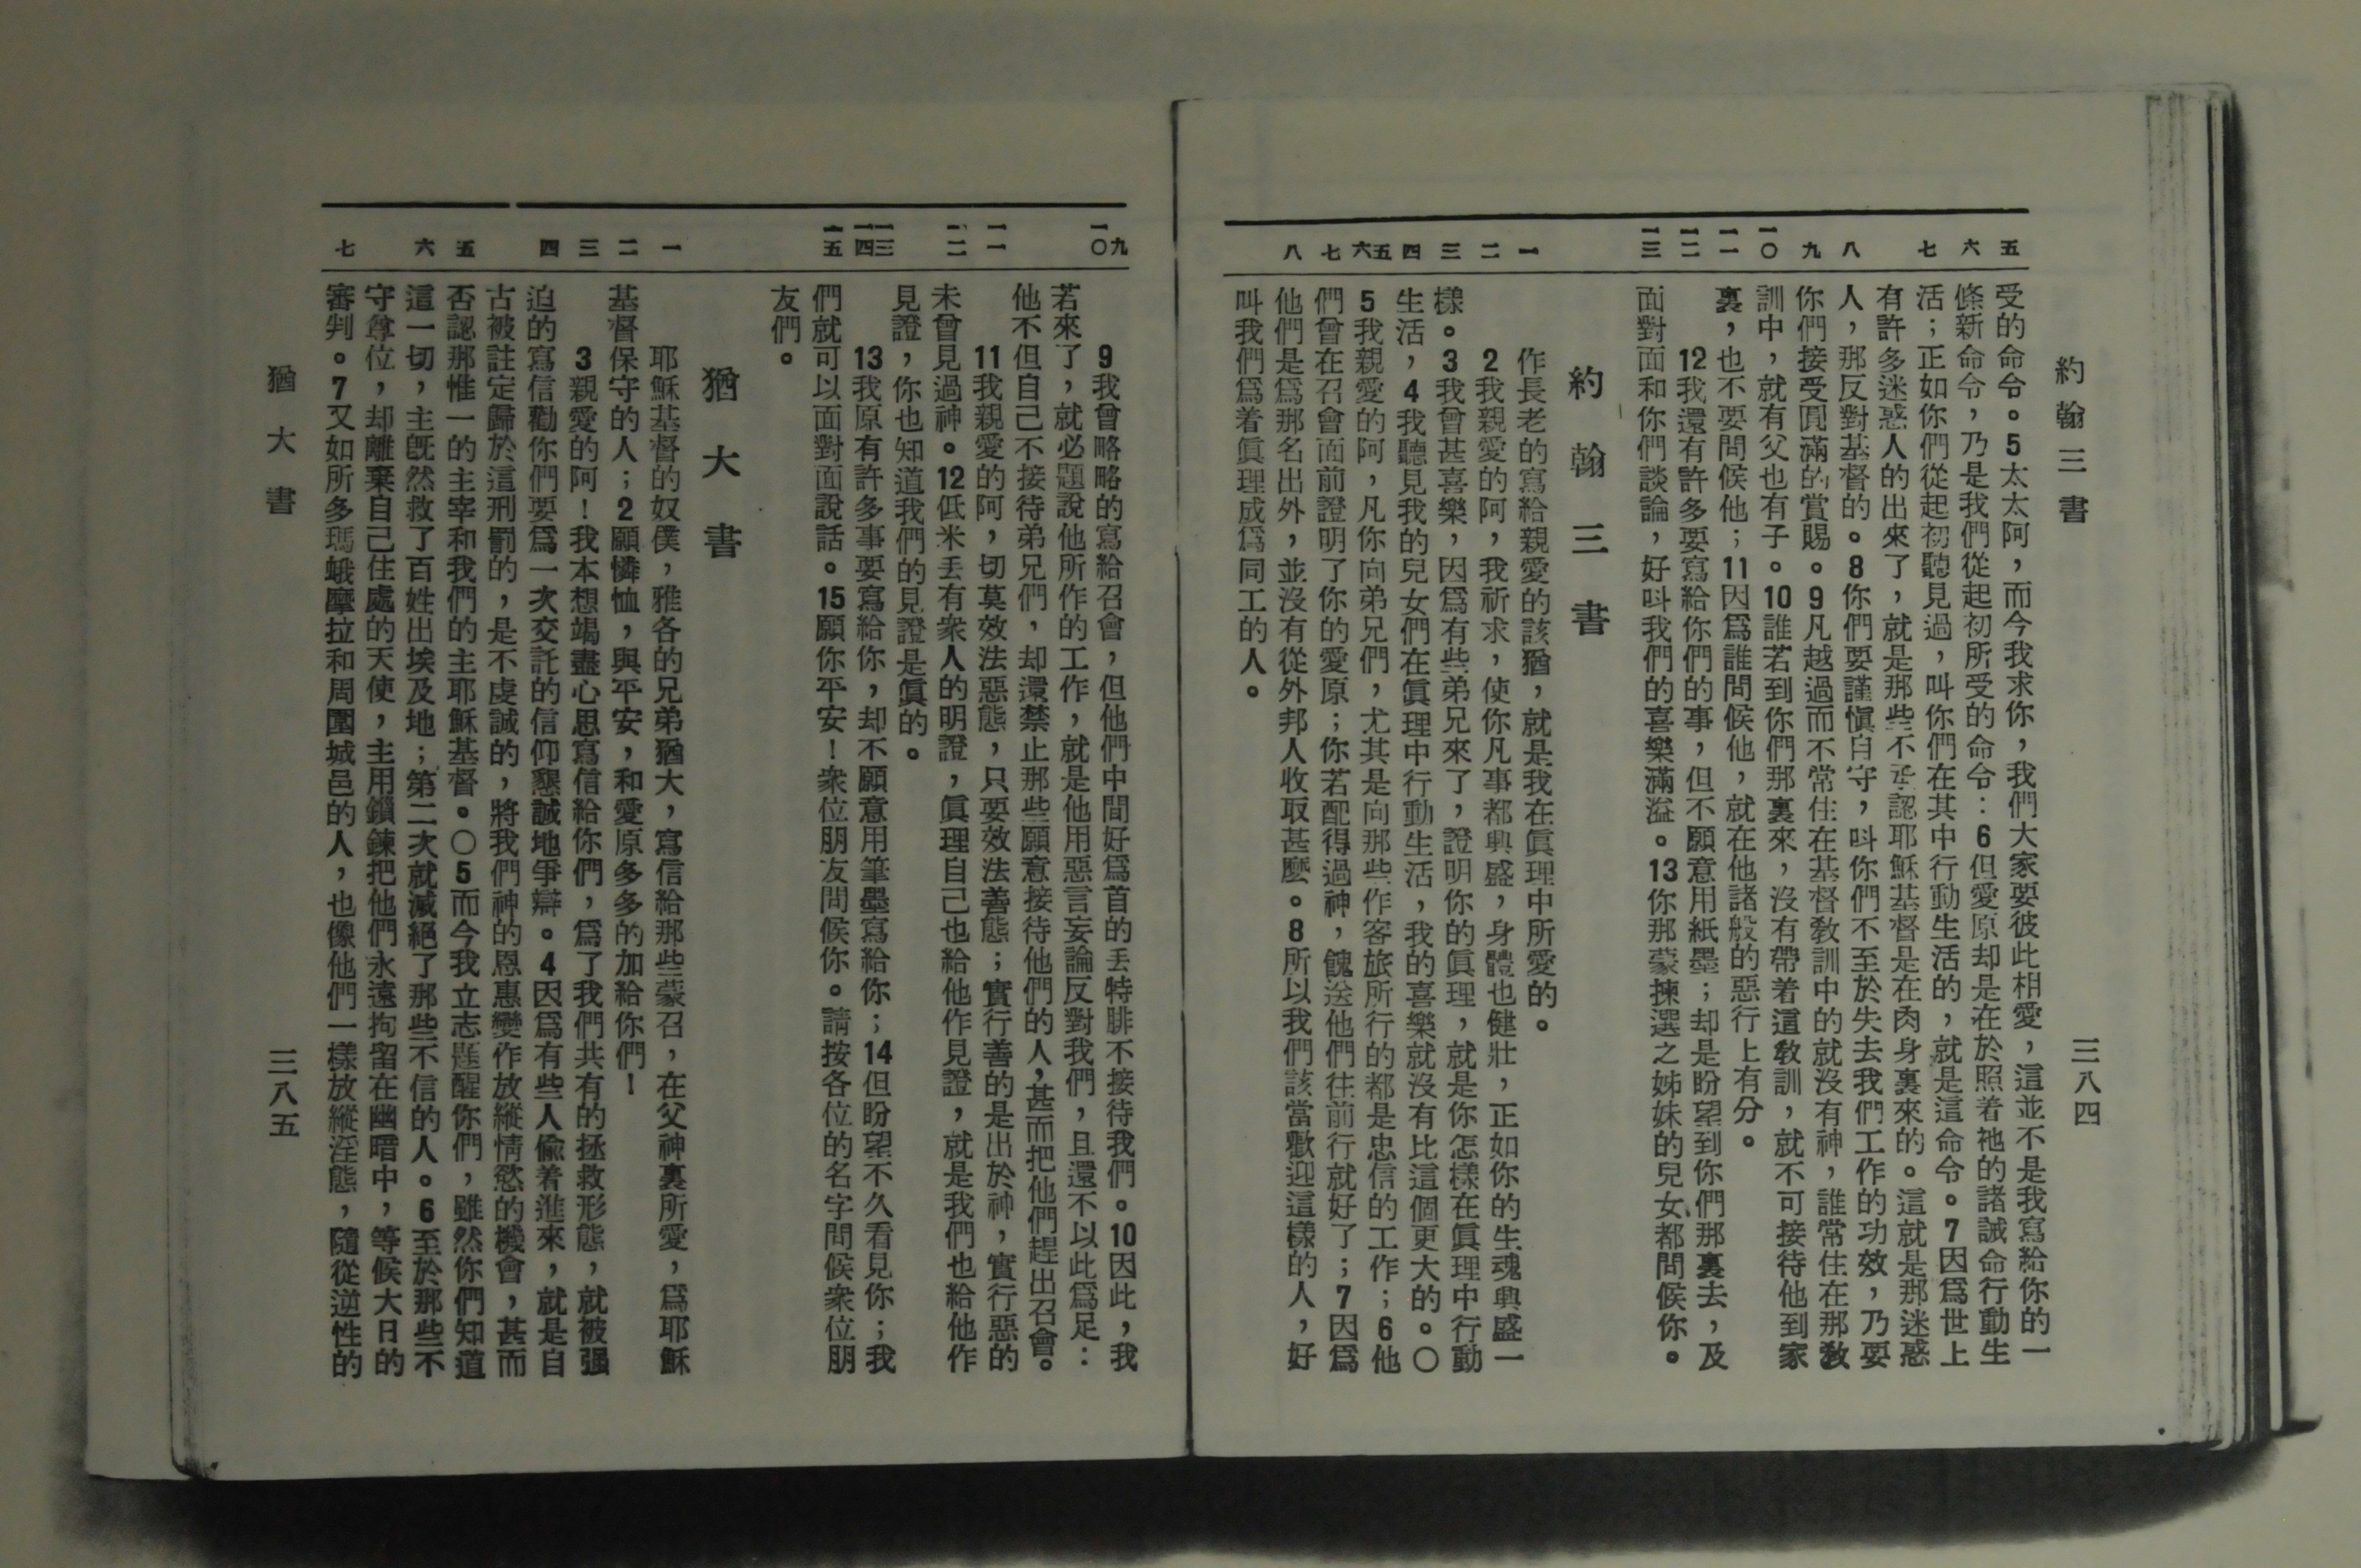 約翰三書 三八四
五 六 七 八 九 一〇 一一 一二 一三 一 二 三 四 五 六 七 八
受的命令。5太太阿，而今我求你，我們大家要彼此相愛，這並不是我寫給你的一
條新命令，乃是我們從起初所受的命令：6但愛原却是在於照着祂的諸誡命行動生
活；正如你們從起初聽見過，叫你們在其中行動生活的，就是這命令。7因爲世上
有許多迷惑人的出來了，就是那些不承認耶穌基督是在肉身裏來的。這就是那迷惑
人，那反對基督的。8你們要謹愼自守，叫你們不至於失去我們工作的功效，乃要
你們接受圓滿的賞賜。9凡越過而不常住在基督敎訓中的就沒有神，誰常住在那敎
訓中，就有父也有子。10誰若到你們那裏來，沒有帶着這敎訓，就不可接待他到家
裏，也不要問候他；11因爲誰問候他，就在他諸般的惡行上有分。
12我還有許多要寫給你們的事，但不願意用紙墨；却是盼望到你們那裏去，及
面對面和你們談論，好叫我們的喜樂滿溢。13你那蒙揀選之姊妹的兒女都問候你。
約翰三書
作長老的寫給親愛的該猶，就是我在眞理中所愛的。
2我親愛的阿，我祈求，使你凡事都興盛，身體也健壯，正如你的生魂興盛一
樣。3我曾甚喜樂，因爲有些弟兄來了，證明你的眞理，就是你怎樣在眞理中行動
生活，4我聽見我的兒女們在眞理中行動生活，我的喜樂就沒有比這個更大的。〇
5我親愛的阿，凡你向弟兄們，尤其是向那些作客旅所行的都是忠信的工作；6他
們曾在召會面前證明了你的愛原；你若配得過神，餽送他們往前行就好了；7因爲
他們是爲那名出外，並沒有從外邦人收取甚麽。8所以我們該當歡迎這樣的人，好
叫我們爲着眞理成爲同工的人。
九 一〇 一一 一二 一三 一四 一五 一 二 三 四 五 六 七
9我曾略略的寫給召會，但他們中間好爲首的丟特腓不接待我們。10因此，我
若來了，就必題說他所作的工作，就是他用惡言妄論反對我們，且還不以此爲足：
他不但自己不接待弟兄們，却還禁止那些願意接待他們的人，甚而把他們趕出召會。
11我親愛的阿，切莫效法惡態，只要效法善態；實行善的是出於神，實行惡的
未曾見過神。12低米丟有衆人的明證，眞理自己也給他作見證，就是我們也給他作
見證，你也知道我們的見證是眞的。
13我原有許多事要寫給你，却不願意用筆墨寫給你；14但盼望不久看見你；我
們就可以面對面說話。15願你平安！衆位朋友問候你。請按各位的名字問候衆位朋
友們。
猶大書
耶穌基督的奴僕，雅各的兄弟猶大，寫信給那些蒙召，在父神裏所愛，爲耶穌
基督保守的人；2願憐恤，與平安，和愛原多多的加給你們！
3親愛的阿！我本想竭盡心思寫信給你們，爲了我們共有的拯救形態，就被强
迫的寫信勸你們要爲一次交託的信仰懇誠地爭辯。4因爲有些人偸着進來，就是自
古被註定歸於這刑罰的，是不虔誠的，將我們神的恩惠變作放縱情慾的機會，甚而
否認那惟一的主宰和我們的主耶穌基督。〇5而今我立志題醒你們，雖然你們知道
這一切，主旣然救了百姓出埃及地；第二次就滅絕了那些不信的人。6至於那些不
守尊位，却離棄自己住處的天使，主用鎖鍊把他們永遠拘留在幽暗中，等候大日的
審判。7又如所多瑪蛾摩拉和周圍城邑的人，也像他們一樣放縱淫態，隨從逆性的
猶大書 三八五